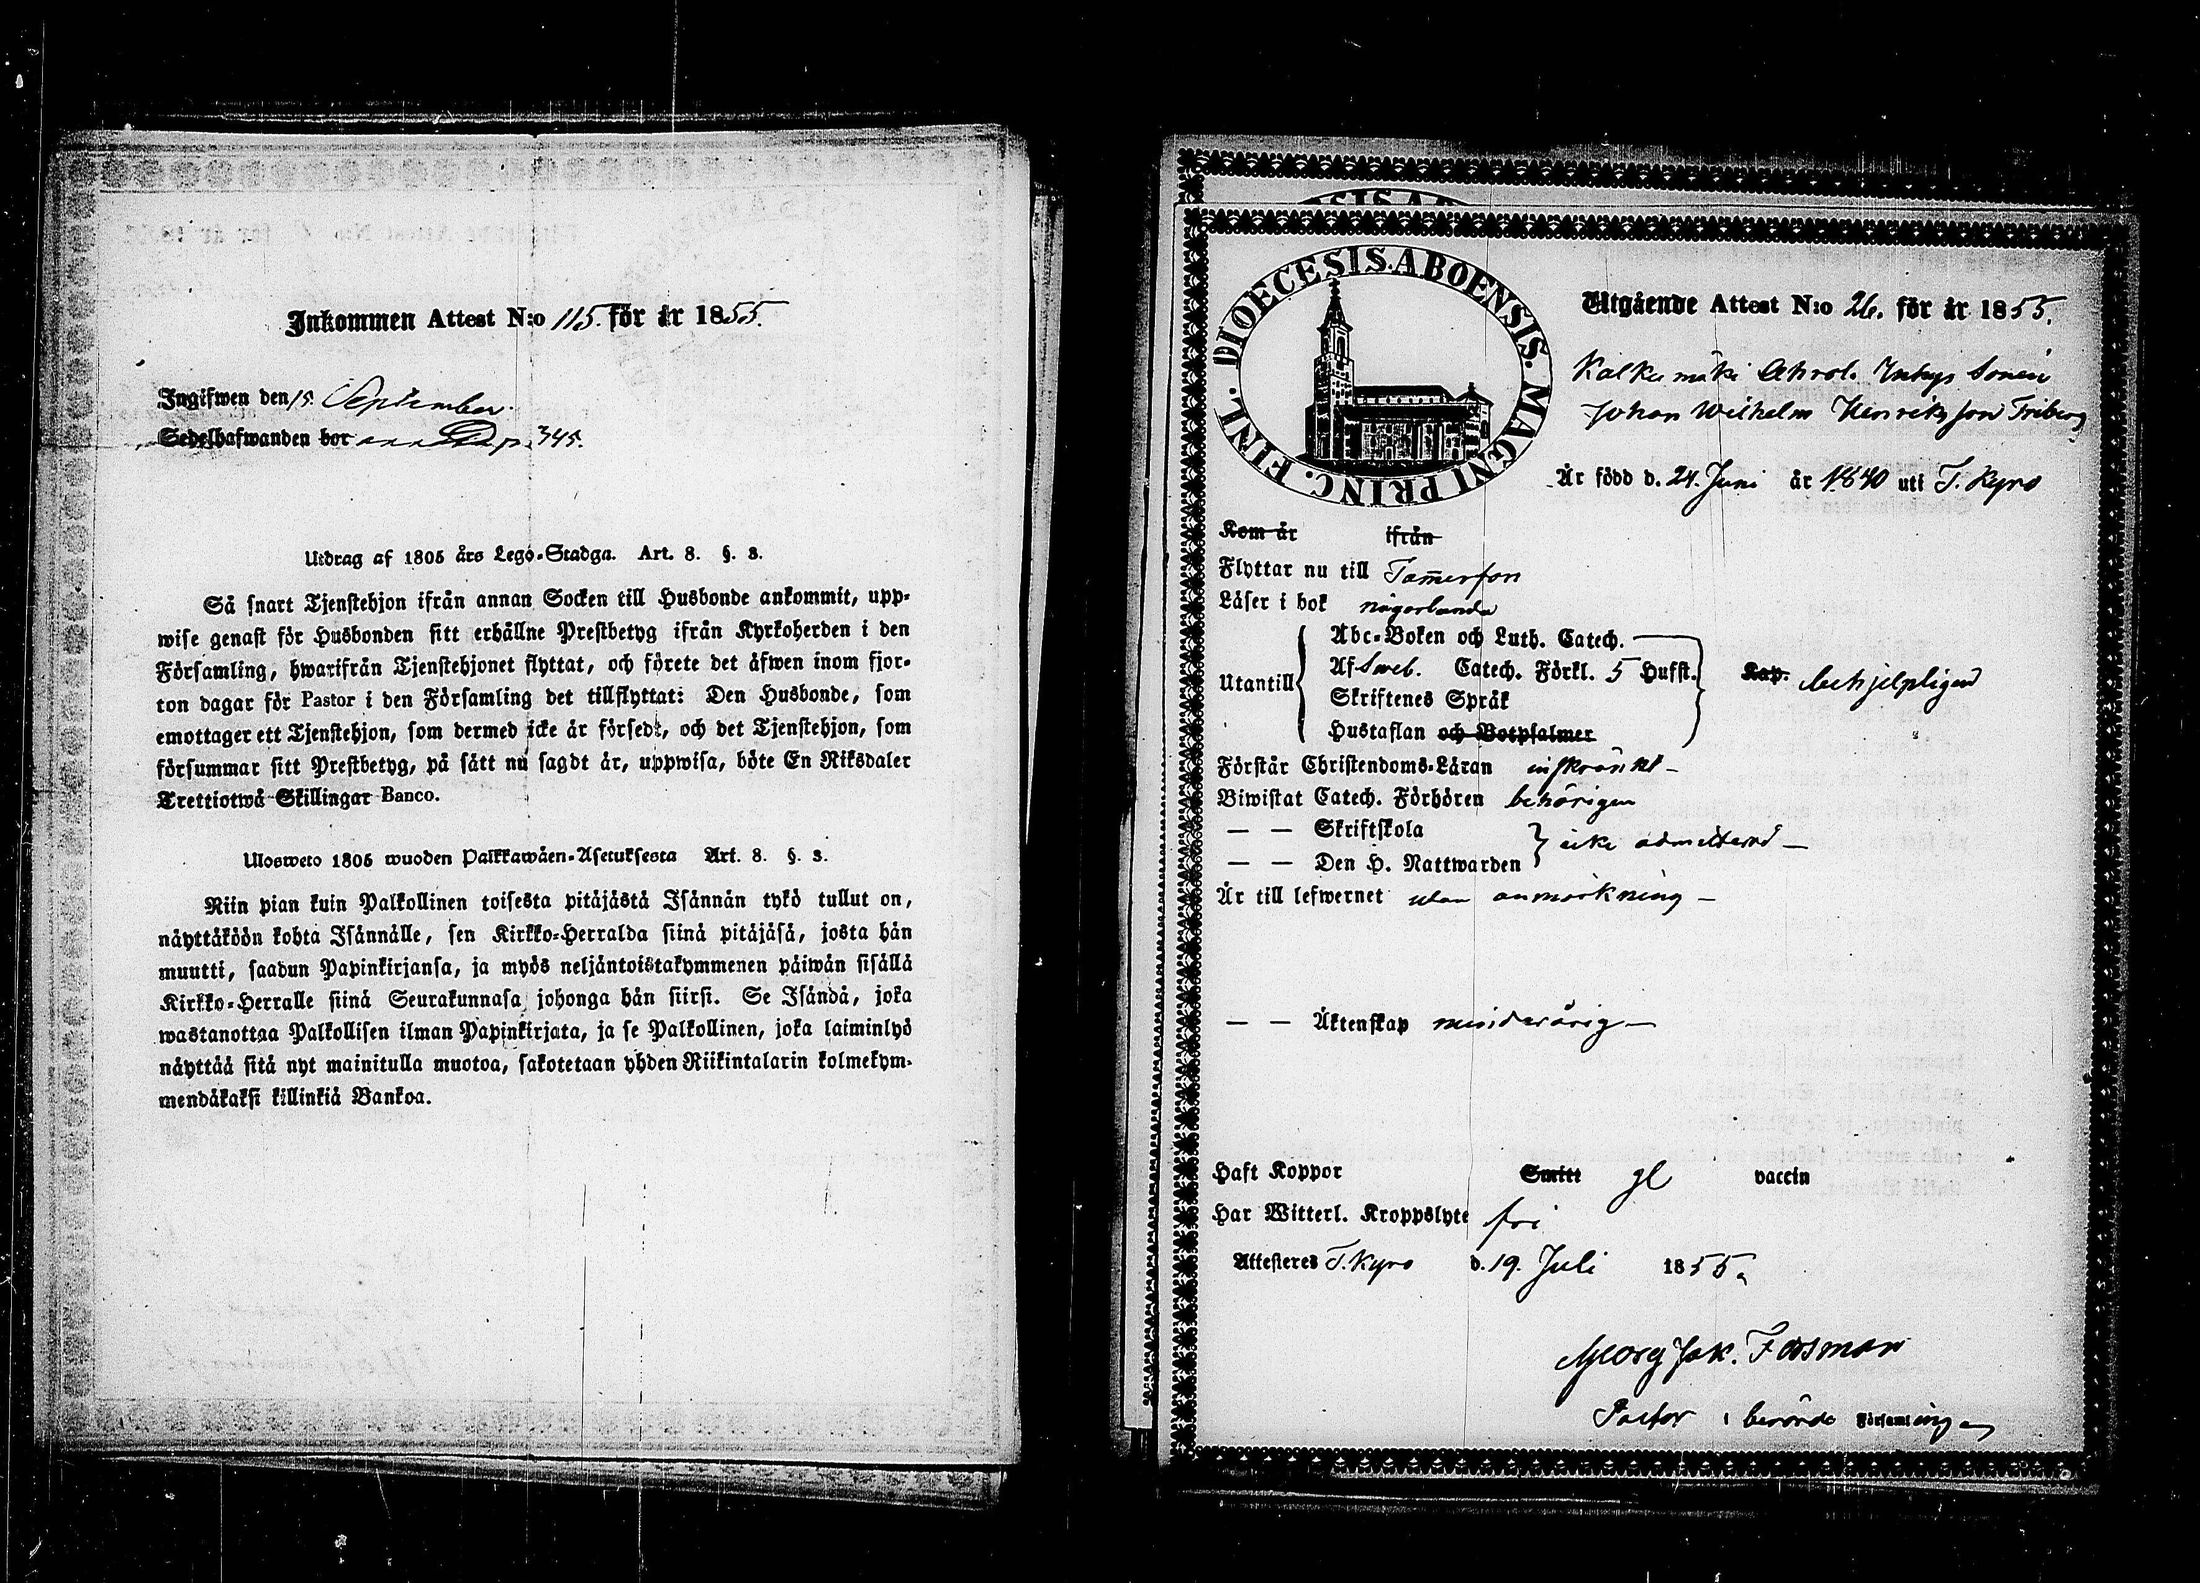 Inkommen Attest N:o 115. för år 1855.
Ingifwen den 15. September.
Sedelhafwanden bor p. 345.
Utdrag af 1805 års Lego-Stadga. Art. 8. §. 3.
Så snart Tjenstehjon ifrån annan Socken till Husbonde ankommit, upp-
wise genast för Husbonden sitt erhållne Prestbetyg ifrån Kyrkoherden i den
Församling, hwarifrån Tjenstehjonet flyttat, och förete det äfwen inom fjor-
ton dagar för Pastor i den Församling det tillflyttat: Den Husbonde, som
emottager ett Tjenstehjon, som dermed icke är försedt, och det Tjenstehjon, som
försummar sitt Prestbetyg, på sätt nu sagdt är, uppwisa, böte En Riksdaler
Trettiotwå Skillingar Banco.
Ulosweto 1805 wuoden Palkkawäen-Asetuksesta Art. 8. §. 3.
Niin pian kuin Palkollinen toisesta pitäjästä Isännän tykö tullut on,
näyttäköön kohta Isännälle, sen Kirkko-Herralda siinä pitäjäsä, josta hän
muutti, saadun Papinkirjansa, ja myös neljäntoistakymmenen päiwän sisällä
Kirkko-Herralle siinä Seurakunnasa johonga hän siirsi. Se Isändä, joka
wastanottaa Palkollisen ilman Papinkirjata, ja se Palkollinen, joka laiminlyö
näyttää sitä nyt mainitulla muotoa, sakotetaan yhden Riikintalarin kolmekym-
mendäkaksi killinkiä Bankoa.
DIOECESIS. ABOENSIS. MAGNI PRINC. FINL.
Utgående Attest N:o 26. för år 1855.
Kalkumäki Sonen
Johan Wilhelm Henriksson Friberg
Är född d. 24. Juni år 1840 uti T. Kyro
Kom år ifrån
Flyttar nu till Tam̅erfors
Läser i bok någorlunda
Utantill
Abc-Boken och Luth. Catech.
Af Sweb. Catech. Förkl. 5 Hufst.
Skriftenes Språk
Hustaflan och Botpsalmer
Kap. behjelpligen
Förstår Christendoms-Läran inskränkt —
Biwistat Catech. Förhören behörigen
— — Skriftskola
— — Den H. Nattwarden
icke admitterad —
Är till lefwernet utan anmärkning —
— — Äktenskap minderårig —
Haft Koppor Smitt gl vaccin
Har Witterl. Kroppslyte fri
Attesteres T. Kyro d. 19. Juli 1855.
Georg Jak. Forsman
Pastor i berörde Församlingen